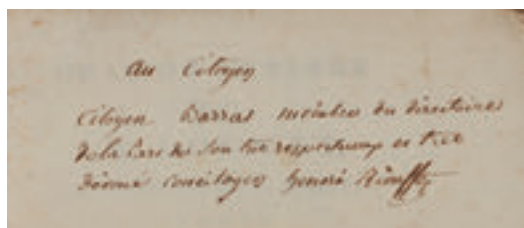 au Citoyen
Citoyen Barras membre du directoire
de la part de son tres respectueux et tres
dévoué concitoyen honoré Riouffe